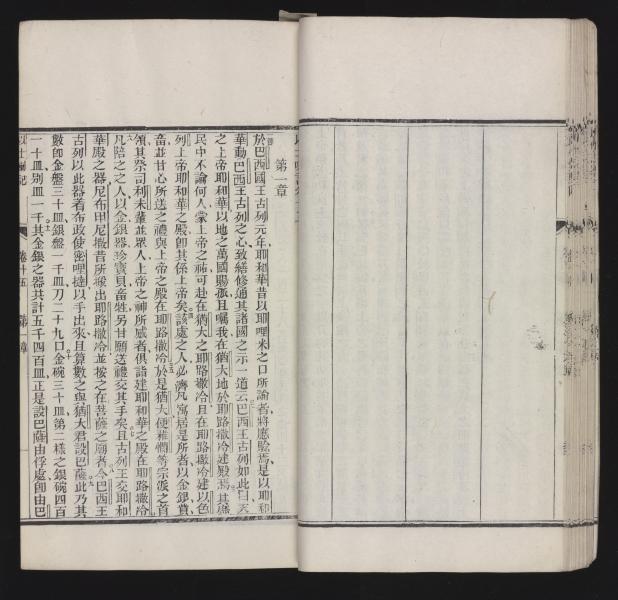 第一章
於巴西國王古列元年耶和華昔以耶哩米之口所諭者將應驗焉是以耶和
華動巴西王古列之心致繕修通其諸國之示一道云巴西王古列如此曰天
之上帝耶和華以地之萬國賜孤且囑我在猶大地於耶路撒冷建殿焉其
民中不論何人蒙上帝之祐可赴在猶大之耶路撒冷且在耶路撒冷建以色
列上帝耶和華之殿卽其係上帝矣該處之人必濟凡寓居是所者以金銀貲
畜並甘心所送之禮與上帝之殿在耶路撒冷於是猶大便雅憫等宗派之首
領其祭司利未輩並眾人上帝之神所感者俱詣建耶和華之殿在耶路撒冷
凡陪之之人以金銀器珍寶貝畜牲另甘願送禮交其手矣且古列王交耶和
華殿之器尼布甲尼撒昔所搬出耶路撒冷並按之在菩薩之廟者今巴西王
古列以此器著布政使密哩撻以手出來且算數之與猶大君設巴薩此乃其
數卽金盤三十皿銀盤一千皿刀二十九口金碗三十皿第二樣之銀碗四百
一十皿別皿一千其金銀之器共計五千四百皿正是設巴薩由俘處卽由巴
以士喇記 卷十五 第一章